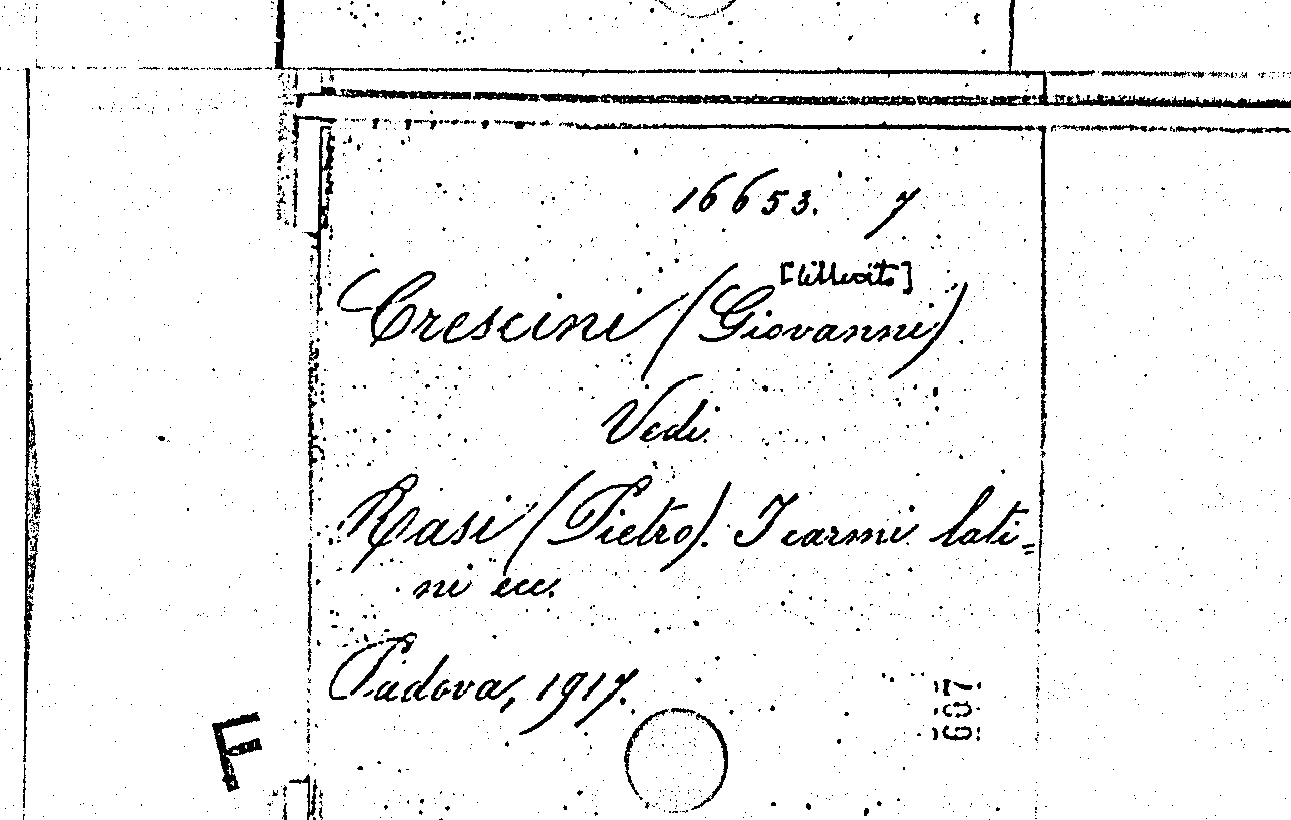 16653. 7
Crescini (Giovanni)
Vedi
Rasi (Pietro). I carmi lati=
ni ecc.
Padova, 1917.
607
F